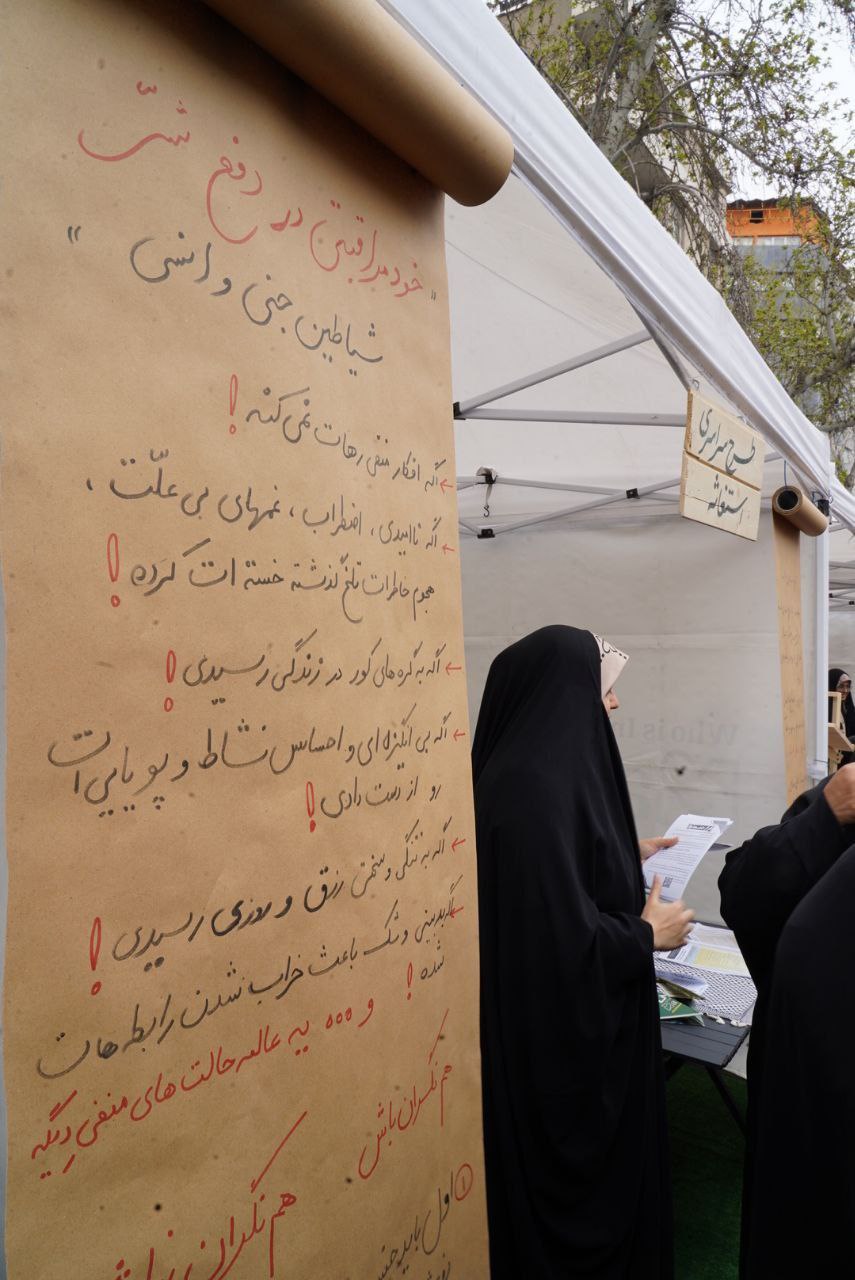 "خودمراقبتی در دفع شرّ
شیاطین جنی و انسی"
← اگه افکار منفی رهات نمی‌کنه!
← اگه ناامیدی، اضطراب، غمهای بی علّت،
هجوم خاطرات تلخ گذشته خسته ات کرده!
← اگه به گره های کور در زندگی رسیدی!
← اگه بی انگیزه ای و احساس نشاط و پویایی ات
رو از دست دادی!
← اگه به تنگی و سختی رزق و روزی رسیدی!
← اگه بدبینی و شک باعث خراب شدن رابطه هات
شده!
و ... یه عالمه حالت های منفی دیگه
هم نگران باش
هم نگران نباش
① اول باید
طرح سراسری
استغاثه
Who is